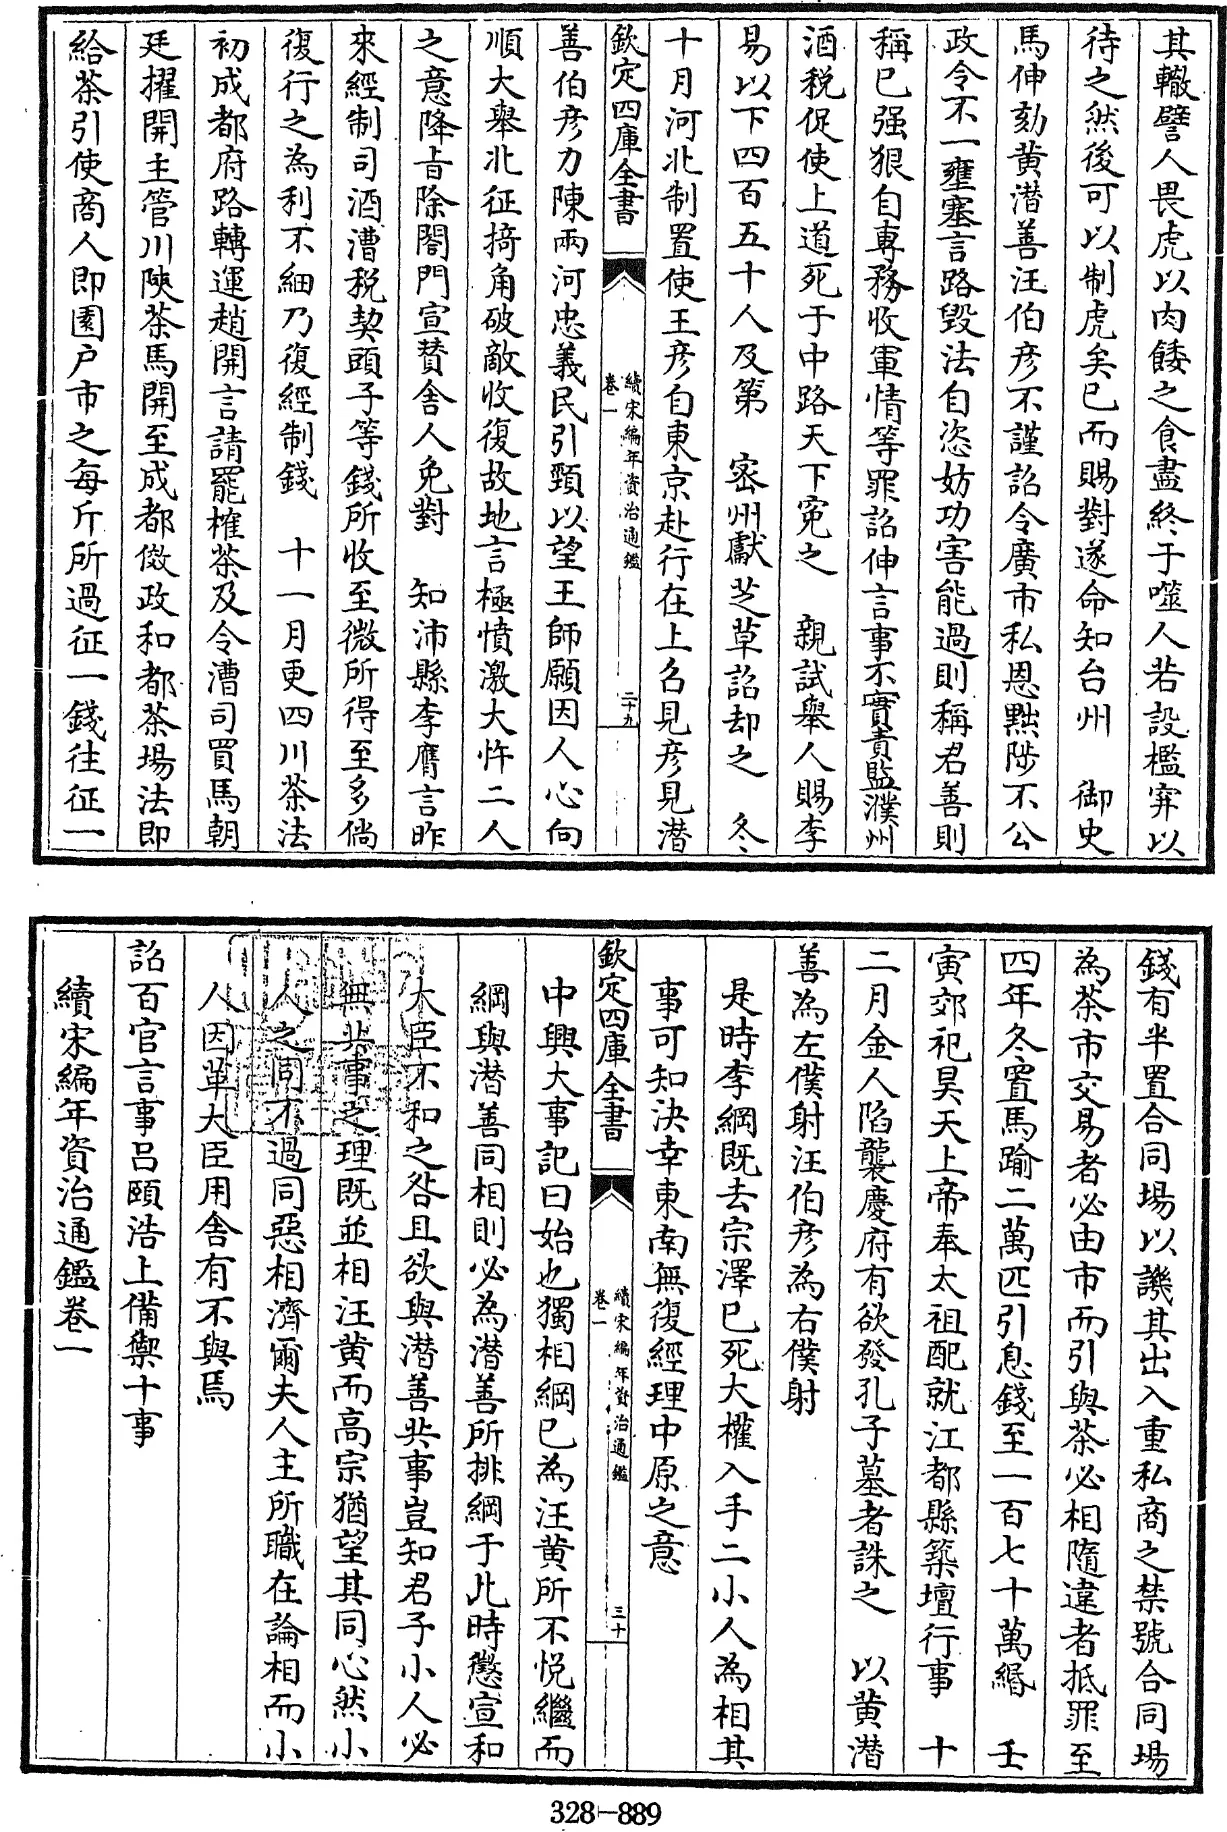 其轍譬人畏虎以肉餧之食盡終于噬人若設檻穽以
待之然後可以制虎矣已而賜對遂命知台州　御史
馬伸劾黄潛善汪伯彦不謹詔令廣市私恩黜陟不公
政令不一壅塞言路毀法自恣妨功害能過則稱君善則
稱已强狠自專務收軍情等罪詔伸言事不實責監濮州
酒税促使上道死于中路天下寃之　親試舉人賜李
易以下四百五十人及第　宻州獻芝草詔却之　冬
十月河北制置使王彦自東京赴行在上召見彦見潛
欽定四庫全書
續宋編年資治通鑑
卷一
二十九
善伯彦力陳兩河忠義民引頸以望王師願因人心向
順大舉北征掎角破敵收復故地言極憤激大忤二人
之意降旨除閤門宣賛舍人免對　知沛縣李膺言昨
來經制司酒漕税契頭子等錢所收至微所得至多倘
復行之為利不細乃復經制錢　十一月更四川茶法
初成都府路轉運趙開言請罷榷茶及令漕司買馬朝
廷擢開主管川陜茶馬開至成都倣政和都茶場法即
給茶引使商人即園户市之每斤所過征一錢往征一
錢有半置合同場以譏其出入重私商之禁號合同場
為茶市交易者必由市而引與茶必相隨違者抵罪至
四年冬置馬踰二萬匹引息錢至一百七十萬緡　壬
寅郊祀昊天上帝奉太祖配就江都縣築壇行事　十
二月金人陷襲慶府有欲發孔子墓者誅之　以黄潛
善為左僕射汪伯彦為右僕射
是時李綱既去宗澤已死大權入手二小人為相其
事可知決幸東南無復經理中原之意
欽定四庫全書
續宋編年資治通鑑
卷一
三十
中興大事記曰始也獨相綱已為汪黄所不悦繼而
綱與潛善同相則必為潛善所排綱于此時懲宣和
大臣不和之咎且欲與潛善共事豈知君子小人必
無共事之理既並相汪黄而高宗猶望其同心然小
人之同不過同惡相濟爾夫人主所職在論相而小
人因革大臣用舍有不與焉
詔百官言事吕頤浩上備禦十事
續宋編年資治通鑑卷一
328-889